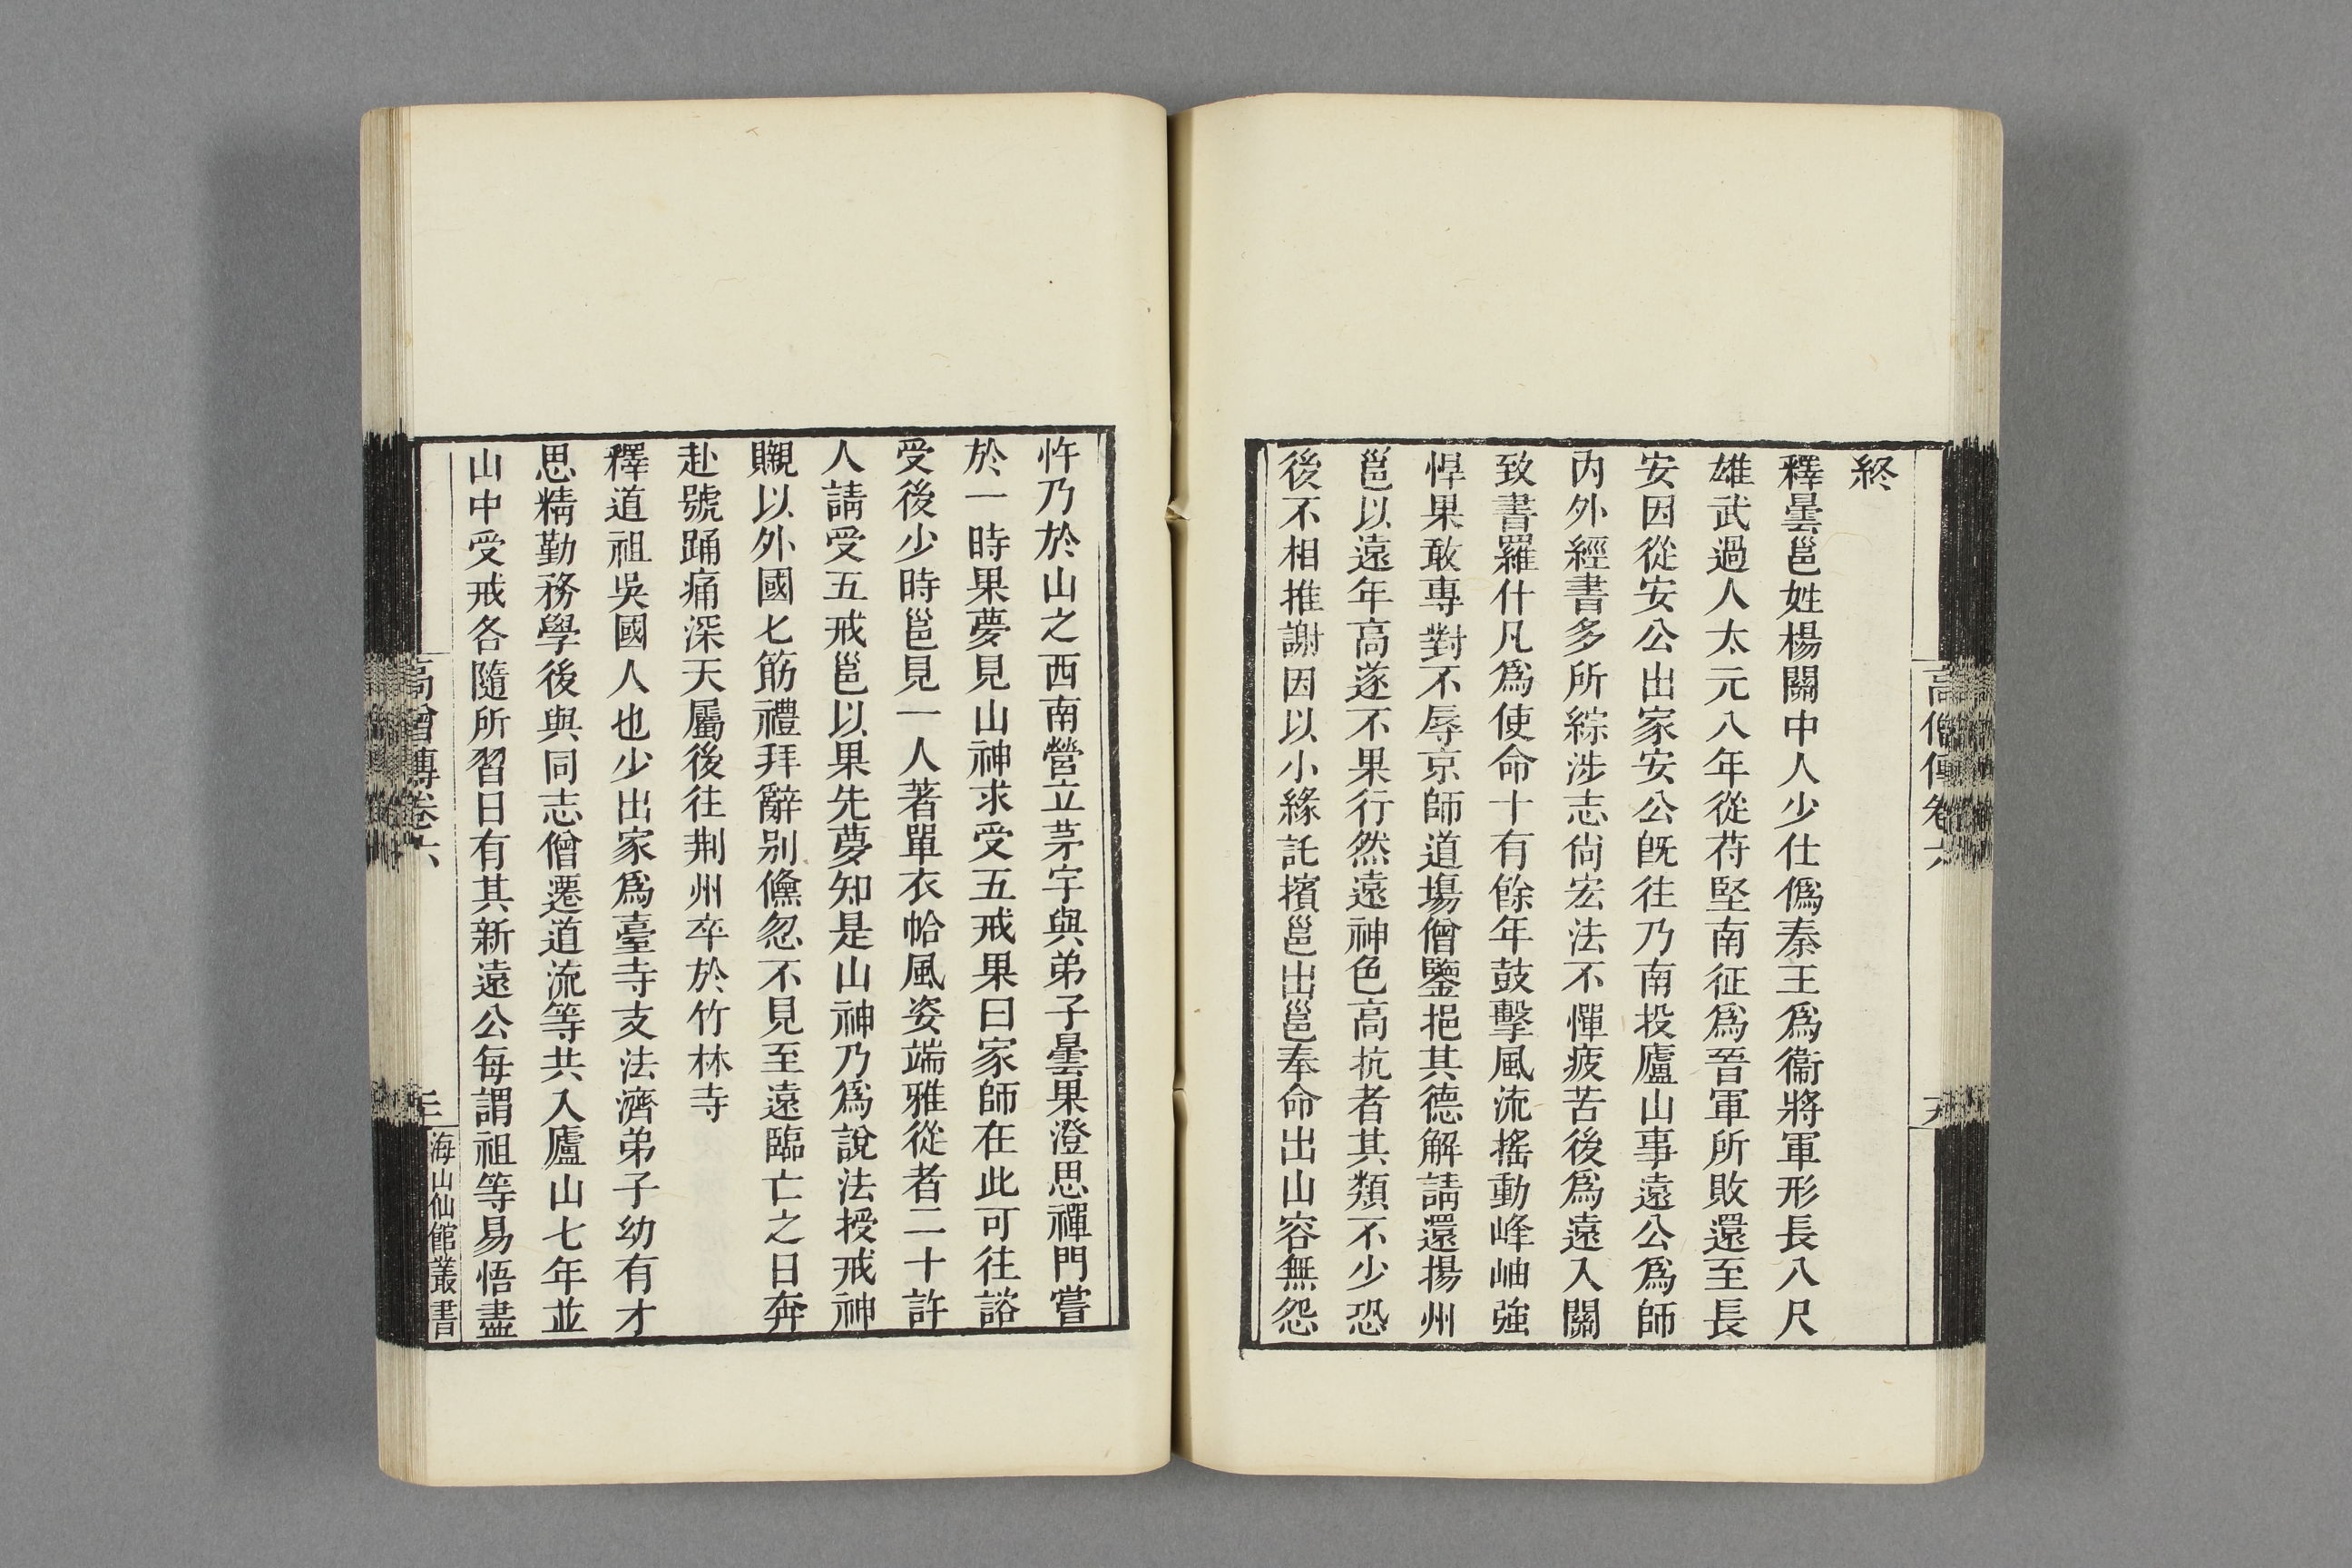 高僧傳卷六
終
釋曇邕姓楊關中人少仕僞秦王爲衞將軍形長八尺
雄武過人太元八年從苻堅南征爲晉軍所敗還至長
安因從安公出家安公既往乃南投廬山事遠公爲師
內外經書多所綜涉志尙宏法不憚疲苦後爲遠入關
致書羅什凡爲使命十有餘年鼓擊風流搖動峰岫強
悍果敢專對不辱京師道場僧鑒挹其德解請還揚州
邕以遠年高遂不果行然遠神色高抗者其類不少恐
後不相推謝因以小緣託擯邕出邕奉命出山容無怨
忤乃於山之西南營立茅宇與弟子曇果澄思禪門嘗
於一時果夢見山神求受五戒果曰家師在此可往諮
受後少時邕見一人著單衣帢風姿端雅從者二十許
人請受五戒邕以果先夢知是山神乃爲說法授戒神
䞋以外國七筯禮拜辭別儵忽不見至遠臨亡之日奔
赴號踊痛深天屬後往荆州卒於竹林寺
釋道祖吳國人也少出家爲臺寺支法濟弟子幼有才
思精勤務學後與同志僧遷道流等共入廬山七年並
山中受戒各隨所習日有其新遠公每謂祖等易悟盡
高僧傳卷六
海山仙館叢書